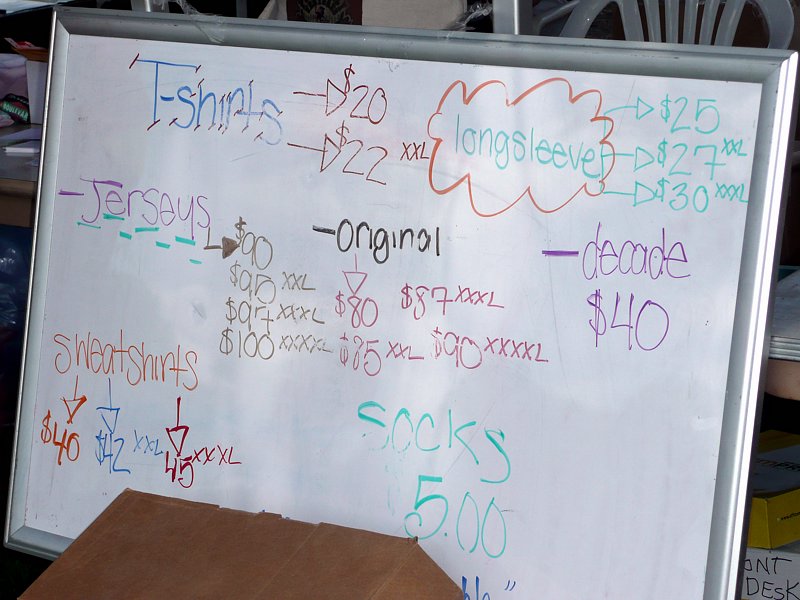 T-shirts
$20
$22 XXL
longsleeve
$25
$27 XXL
$30 XXXL
- Jerseys
$90
$95 XXL
$97 XXXL
$100 XXXXL
- original
$80
$87 XXXL
$85 XXL
$90 XXXXL
- decade
$40
sweatshirts
$40
$42 XXL
45 XXXL
socks
5.00
DESK